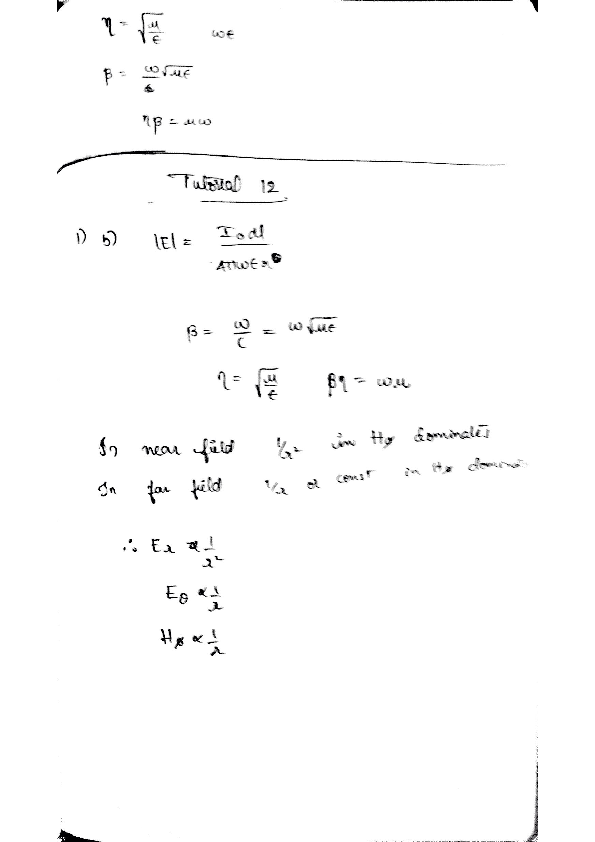 η = √(μ/ϵ) ωϵ
β = ω√μϵ
ηβ = μω
Tutorial 12
1) b) |E| = I₀dl / 4πωϵr
β = ω/c = ω√μϵ
η = √(μ/ϵ) βη = ωμ
In near field 1/r² in Hφ dominates
In far field 1/r or const in Hφ
∴ Er ∝ 1/r²
Eθ ∝ 1/r
Hφ ∝ 1/r